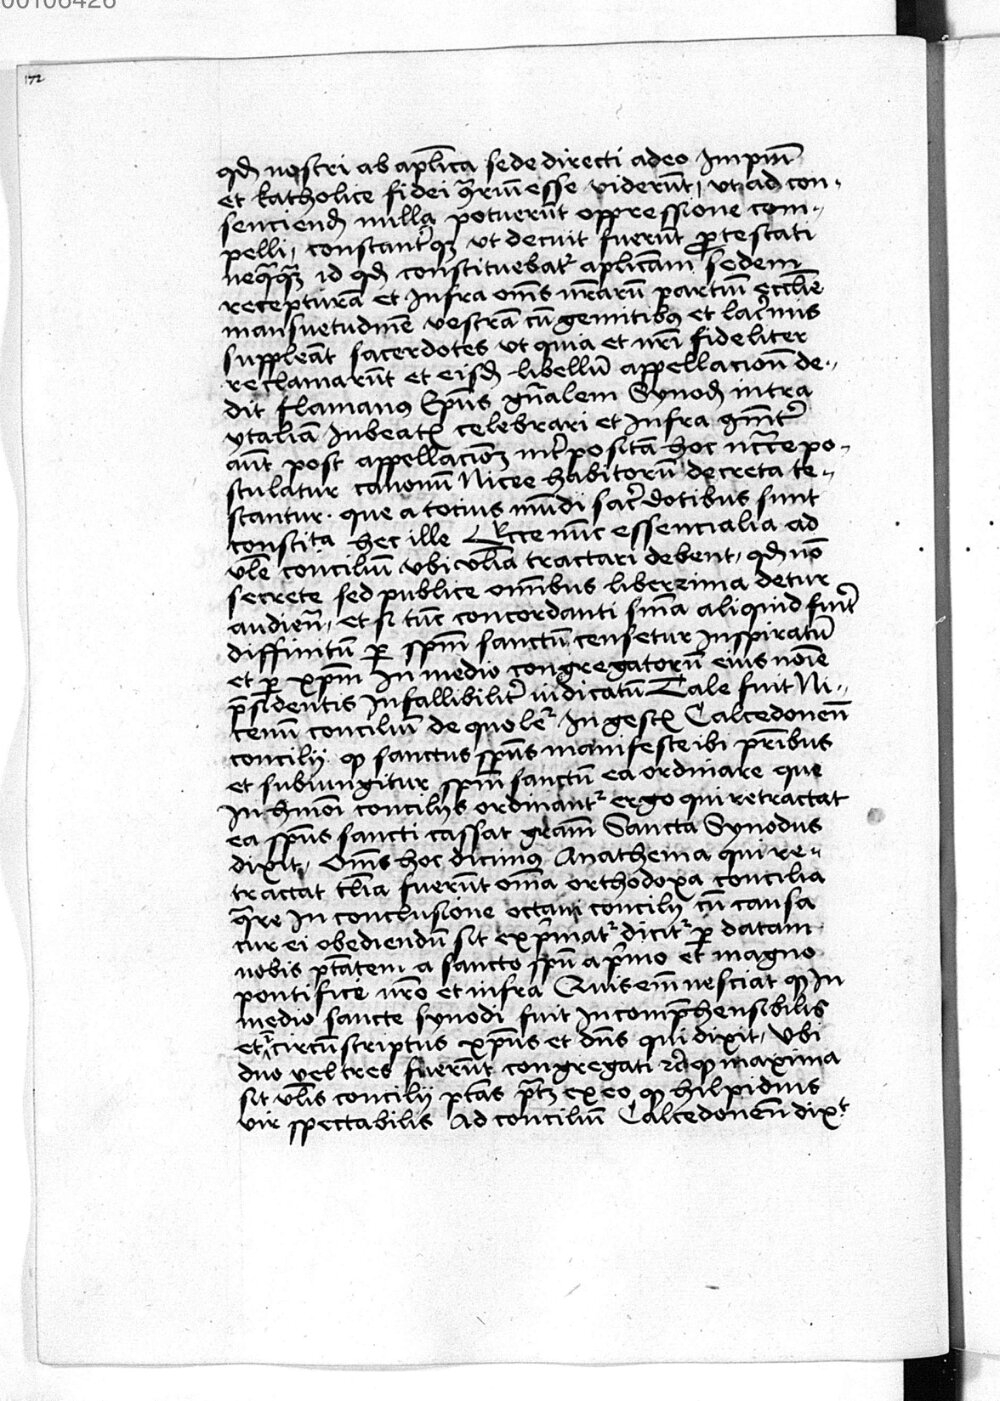 00106426
172
qd nostri ab aplica sede directi adeo Impiu
et katholice fidei griu esse viderut, vt ad con-
senciend nulla potuerut oppressione com-
pelli, constantqz vt decuit fuerut protestati
neqqz id qd constituebat aplicam sedem
recepturam et Infra oms nraru partiu ecclie
mansuetudine vestra cu gemitibus et lacrimis
suppleat sacerdotes vt quia et nri fideliter
reclamarut et eisd libellu appellacion de-
dit flamanus Epus gnalem Synod intra
ytalia Iubeatis celebrari et Infra
aut post appellacioz interposita hoc ncce po-
stulatur canonu Nicee habitoru decreta te-
stantur. que a tocius mudi sacerdotibus sunt
constita hec ille Ecce nuc essencialia ad
vle conciliu vbi vlia tractari debent, qd no
secrete sed publice omibus liberrima detur
audien, et si tuc concordanti snia aliquid fuit
diffinitu per spm sanctu censetur Inspiratu
et per xpm In medio congregatoru eius noie
presidentis Infallibiliter iudicatu Tale fuit Ni-
cenu conciliu de quo le In gestis Calcedonen
concily qp sanctus spus manifeste ibi pribus
et subiungitur spm sanctu ea ordinare que
In hmoi concilys ordinant ergo qui retractat
ea spus sancti cassat gram Sancta Synodus
dixit, Oms hoc dicimus Anathema qui re-
tractat tlia fuerut omia orthodoxa concilia
qre In conclusione octaui concily cu causa
cur ei obediendu sit exprimat dicit per datam
nobis ptatem a sancto spu a primo et magno
pontifice nro et infra Quis em nesciat qp In
medio sancte synodi fuit Incomprehensibilis
et circuscriptus xpus et dns qui dixit, Vbi
duo vel tres fuerut congregati rc qp maxima
sit vlis concily ptas ptz ex eo qp hilpidius
vir spectabilis Ad conciliu Calcedonen dixt